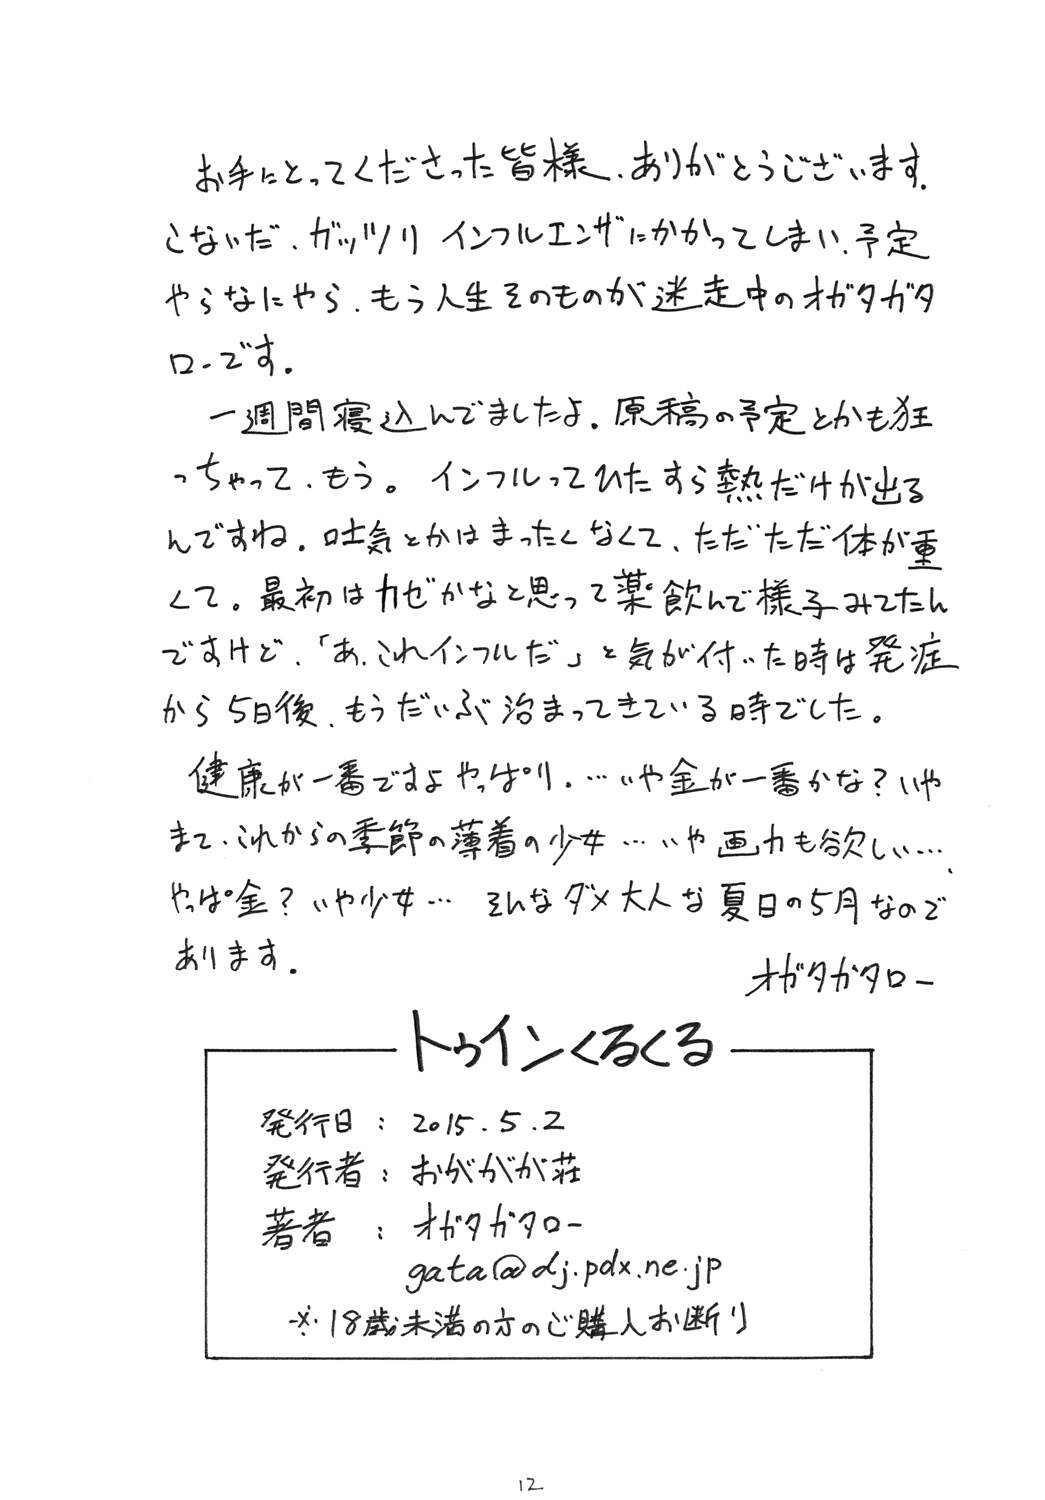 お手にとってくださった皆様、ありがとうございます。
こないだ、ガッツリ インフルエンザにかかってしまい、予定
やらなにやら、もう人生そのものが迷走中のオガタガタ
ローです。
一週間寝込んでましたよ。原稿の予定とかも狂
っちゃって、もう。 インフルってひたすら熱だけが出る
んですね。吐気とかはまったくなくて、ただただ体が重
くて。最初はカゼかなと思って薬飲んで様子みてたん
ですけど、「あ、これインフルだ」と気が付いた時は発症
から5日後、もうだいぶ治まってきている時でした。
健康が一番ですよやっぱり。…いや金が一番かな?いや
まて、これからの季節の薄着の少女…いや画力も欲しい…、
やっぱ金?いや少女… そんなダメ大人な夏日の5月なので
あります。
オガタガタロー
トゥインくるくる
発行日 : 2015.5.2
発行者 : おがががが荘
著者 : オガタガタロー
gata@dj.pdx.ne.jp
※18歳未満の方のご購入お断り
12